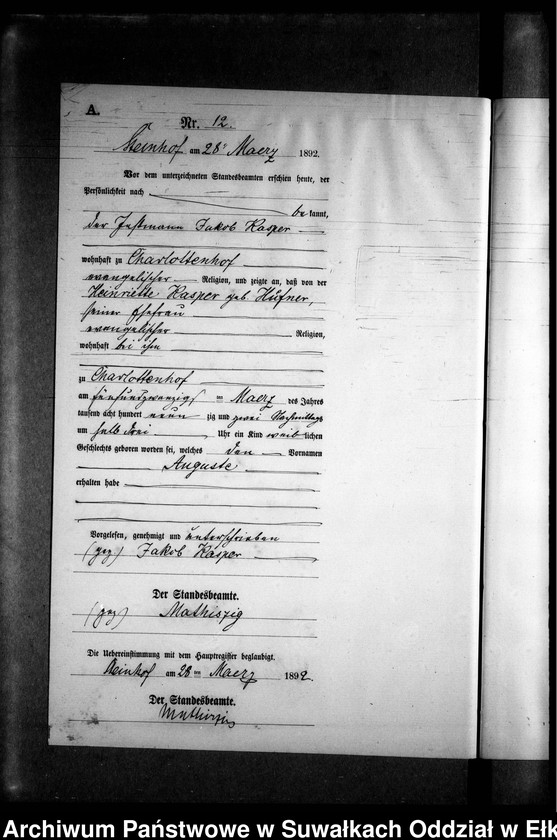 A.
Nr. 12.
Steinhof am 28ᵗ Maerz 1892.
Vor dem unterzeichneten Standesbeamten erschien heute, der
Persönlichkeit nach
be kannt,
der Instmann Jakob Kasper
wohnhaft zu Charlottenhof
evangelischer Religion, und zeigte an, daß von der
Heinriette Kasper geb Hüfner,
seiner Ehefrau
evangelischer Religion,
wohnhaft bei ihm
zu Charlottenhof
am fünfundzwanzigs ten Maerz des Jahres
tausend acht hundert neun zig und zwei Nachmittags
um halb drei Uhr ein Kind weib lichen
Geschlechts geboren worden sei, welches den Vornamen
Auguste
erhalten habe
Vorgelesen, genehmigt und unterschrieben
(gez) Jakob Kasper
Der Standesbeamte.
(gez) Mathiszig
Die Uebereinstimmung mit dem Hauptregister beglaubigt.
Steinhof am 28 ten Maerz 1892.
Der Standesbeamte.
Mathiszig
Archiwum Państwowe w Suwałkach Oddział w Ełk